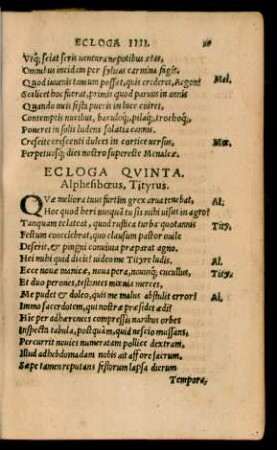 ECLOGA IIII.
Vtq; sciat seris ventura nepotibus ætas,
Omnibus incidam per syluas carmina fagis.
Quod iuuenis tantum posset, quis crederet, Aegon? Mel.
Scilicet hoc fuerat, primis quod paruus in annis
Quando nuci festa pueris in luce coiret,
Contemptis nucibus, baculoq;, pilaq;, trochoq;,
Poneret in solis ludens solatia cannis.
Crescite crescenti dulces in cortice versus, Moe.
Perpetuosq; dies nostro superesse Menalcæ.
ECLOGA QVINTA.
Alphesibœus, Tityrus.
QVæ meliora tuus furtim grex arua tenebat, Al;
Hoc quod heri nunquā tu sis mihi visus in agro?
Tanquam te lateat, quod rustica turba quotannis Tity,
Festum concelebrat, quo clausum pastor ouile
Deserit, & pingui conuiuia præparat agno.
Hei mihi quid dicis? video me Tityre ludis. Al.
Ecce nouæ manicæ, noua pera, nouumq; cucullus, Tity,
Et duo perones, testes meæ mœnia merces,
Me pudet & doleo, quis me malus abstulit error? Al,
Immo sacerdotem, qui nostræ præsidet ædi?
Hic per adhærentes compressis naribus orbes
Inspecta tabula, postquàm, quid nescio mussans,
Percurrit nouies numeratam pollice dextram,
Illud adhebdomadam nobis ait affore sacrum.
Sæpe tamen reputans festorum lapsa dierum
Tempora,